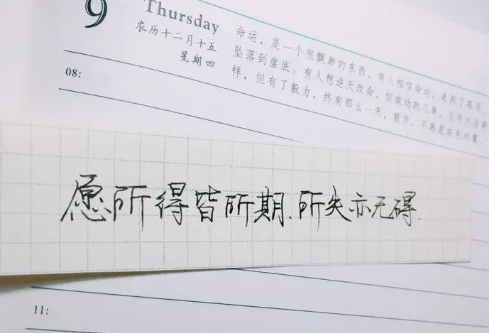 9
Thursday
农历十二月十五
星期四
命运，是一个很飘渺的东西，有人相信命运，
坠落到崖底。有人想逆天改命，
样。但有了毅力，终有那么一天，
08:
愿所得皆所期，所失亦无碍
11: